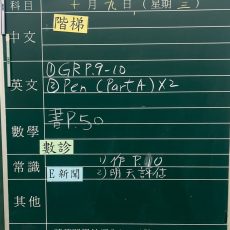 科目 十月九日(星期三)
中文 階梯
英文 ①GRP.9-10
②Pen (Part A) X2
數學 書P.50
數診
常識 1)作P.10
E新聞 2)明天評估
其他